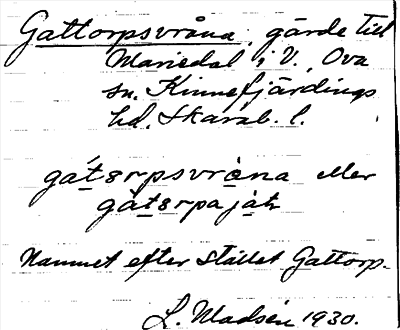 Gattorpsvråna, gärde till
Mariedal i V. Ova
sn. Kinnefjärdings
hd. Skarab. l.
gátərpsvrȧna eller
gátərpajątɩ
Namnet efter stället Gattorp.
L. Madsén 1930.